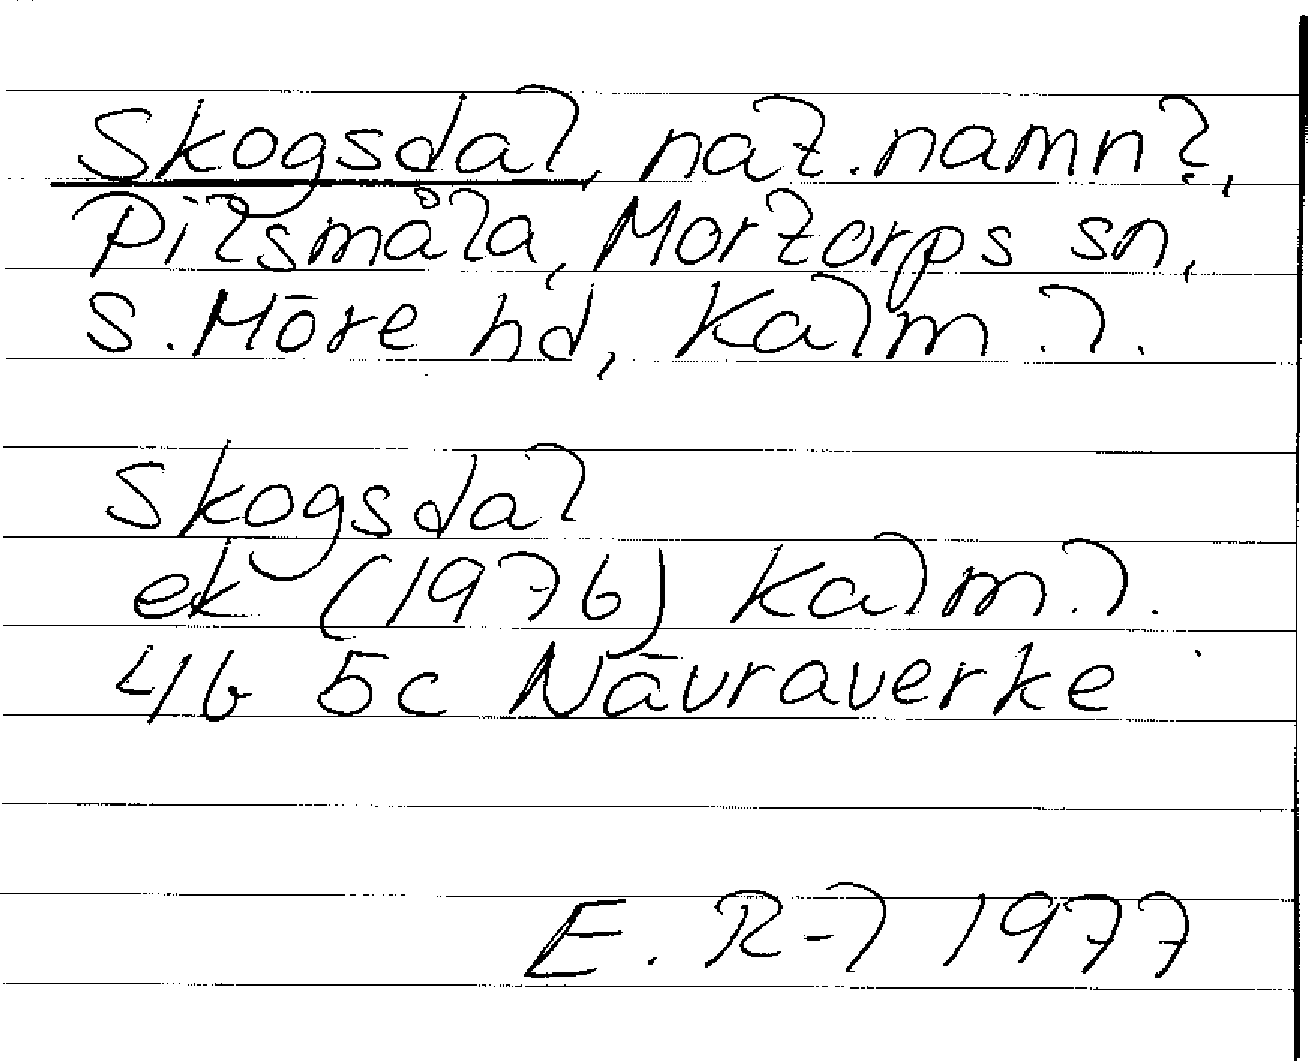 Skogsdal, nat. namn?,
Pilsmåla, Mortorps sn,
S. Möre hd, Kalm. l.
Skogsdal
ek (1976) Kalm. l.
4G 5c Nävraverke
E. R-l 1977